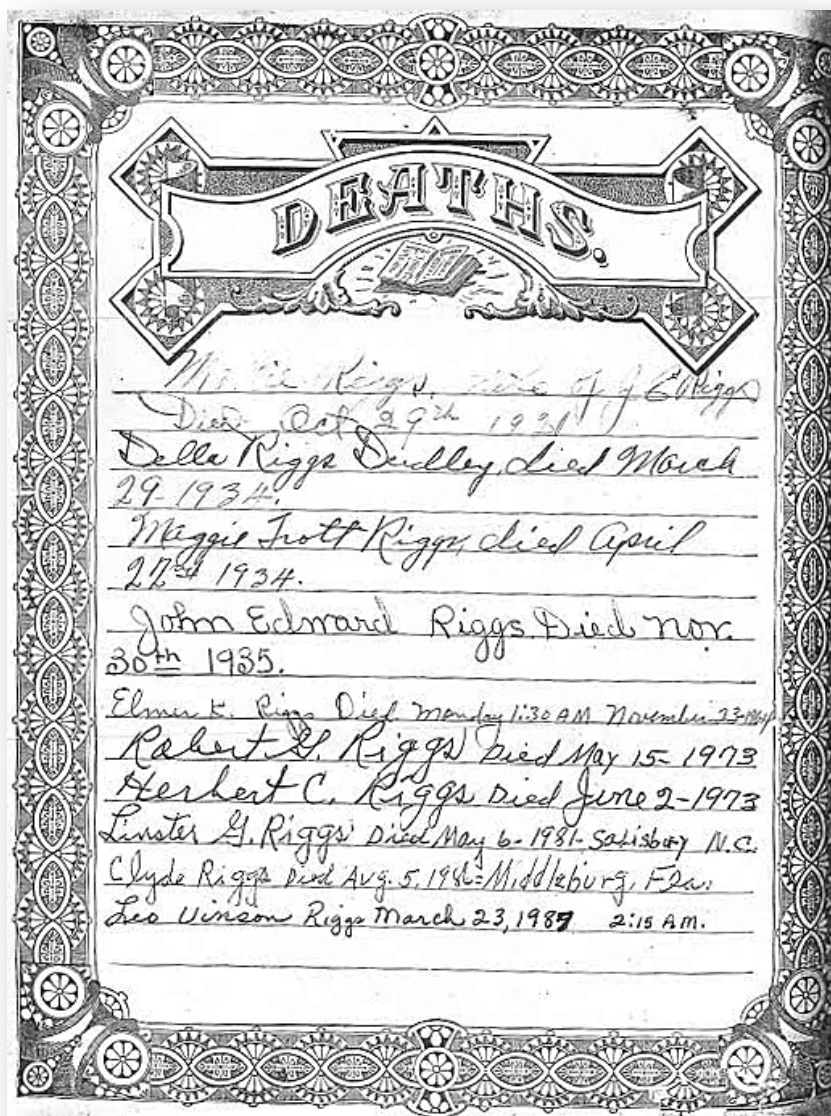 DEATHS.
Riggs, wife of J E Riggs
Died Oct 29th 1921
Della Riggs Dudley, died March
29-1934.
Maggie Trott Riggs, died April
22nd 1934.
John Edward Riggs Died Nov.
30th 1935.
Elmer K. Riggs Died Monday 1:30 AM November 23-1964
Robert G. Riggs Died May 15-1973
Herbert C. Riggs Died June 2-1973
Linster G. Riggs Died May 6-1981-Salisbury N.C.
Clyde Riggs Died Aug. 5, 1986=Middleburg, Fla.
Leo Vinson Riggs March 23, 1987 2:15 AM.